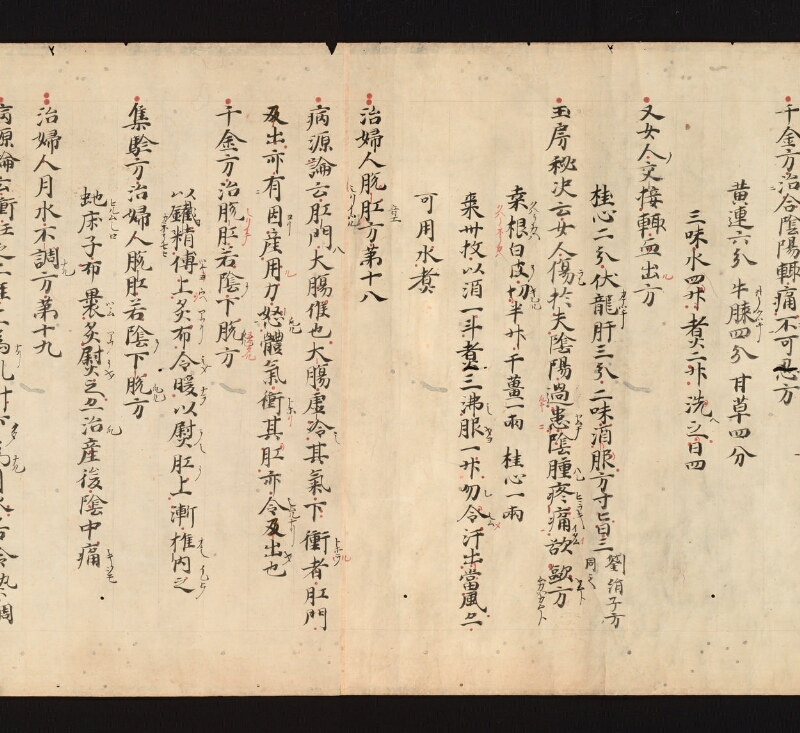 千金方治合陰陽輙痛不可忍方
黄連六分 牛膝四分 甘草四分
三味水四升煮二升洗之日四
又女人交接輙血出方
桂心二分伏龍肝三分二味酒服方寸匕日三
劉涓子方同之
玉房秘决云女人傷於夫陰陽過患陰腫疼痛欲歐方
桒根白皮切半升 干薑一兩 桂心一兩
棗卅枚以酒一斗煮三沸服一升勿令汗出當風亦
可用水煮
治婦人脱肛方第十八
病源論云肛門大膓候也大膓虚冷其氣下衝者肛門
反出亦有因産用力怒體氣衝其肛亦令反出也
千金方治脱肛若陰下脱方
以鐵精傅上炙布令暖以熨肛上漸推内之
集驗方治婦人脱肛若陰下脱方
虵床子布裹炙熨之亦治産後陰中痛
治婦人月水不調方第十九
病源論云衝任之